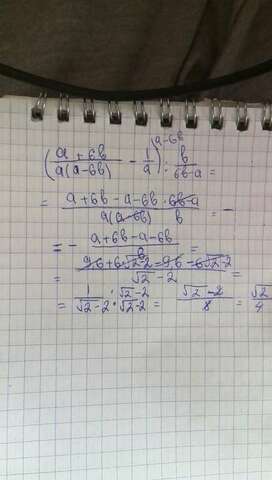 (a + 6b / a(a-6b) - 1/a^(a-6b)) : b / 6b-a =
= a + 6b - a - 6b · 6b-a / a(a-6b) b = -
= - a + 6b - a - 6b / b =
= 96 + 6√2-2 - 96 - 6√2-2 / √2 - 2 =
= 1 / √2-2 : √2-2 / √2-2 = √2 - 2 / 8 = √2 / 4